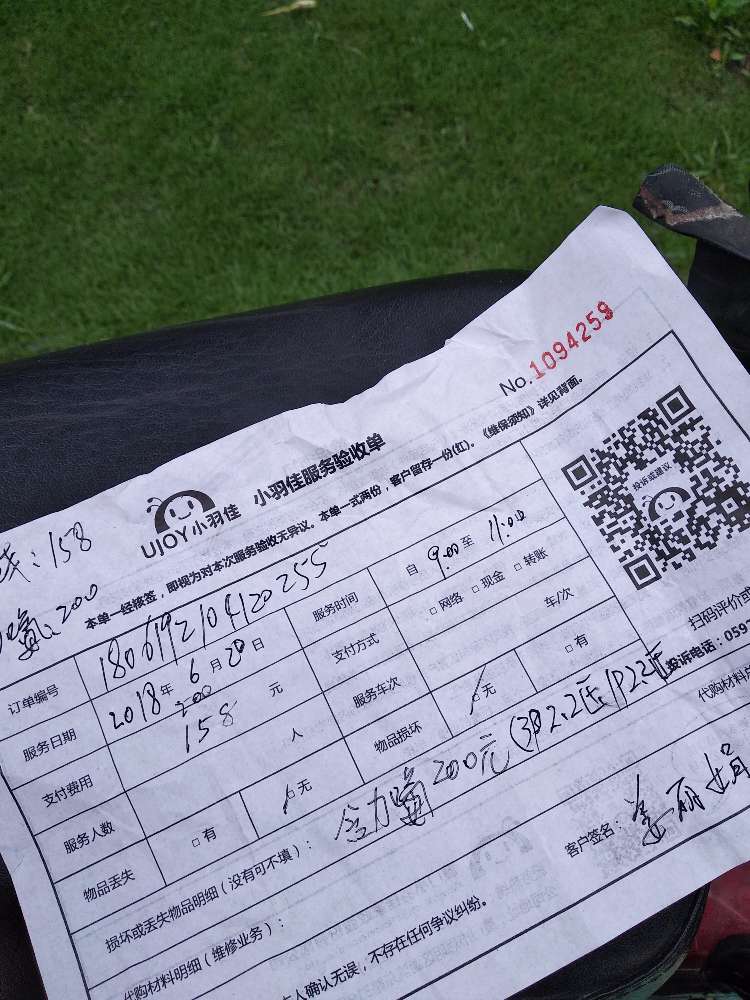 No.1094259
UJOY小羽佳 小羽佳服务验收单
本单一经核签,即视为对本次服务验收无异议。本单一式两份,客户留存一份(红)。《维保须知》详见背面。
:158
:200
投诉或建议
订单编号 180619210420255 服务时间 自 9:00 至 11:00
服务日期 2018年6月20日 支付方式 □网络 □现金 □转账
200
支付费用 158 元 服务车次 车/次
服务人数 人 物品损坏 □无 □有
物品丢失 □有 □无
扫码评价或
投诉电话:059
代购材料
损坏或丢失物品明细(没有可不填): 200元(3P2.2
代购材料明细(维修业务):
客户签名: 姜丽娟
人确认无误,不存在任何争议纠纷。